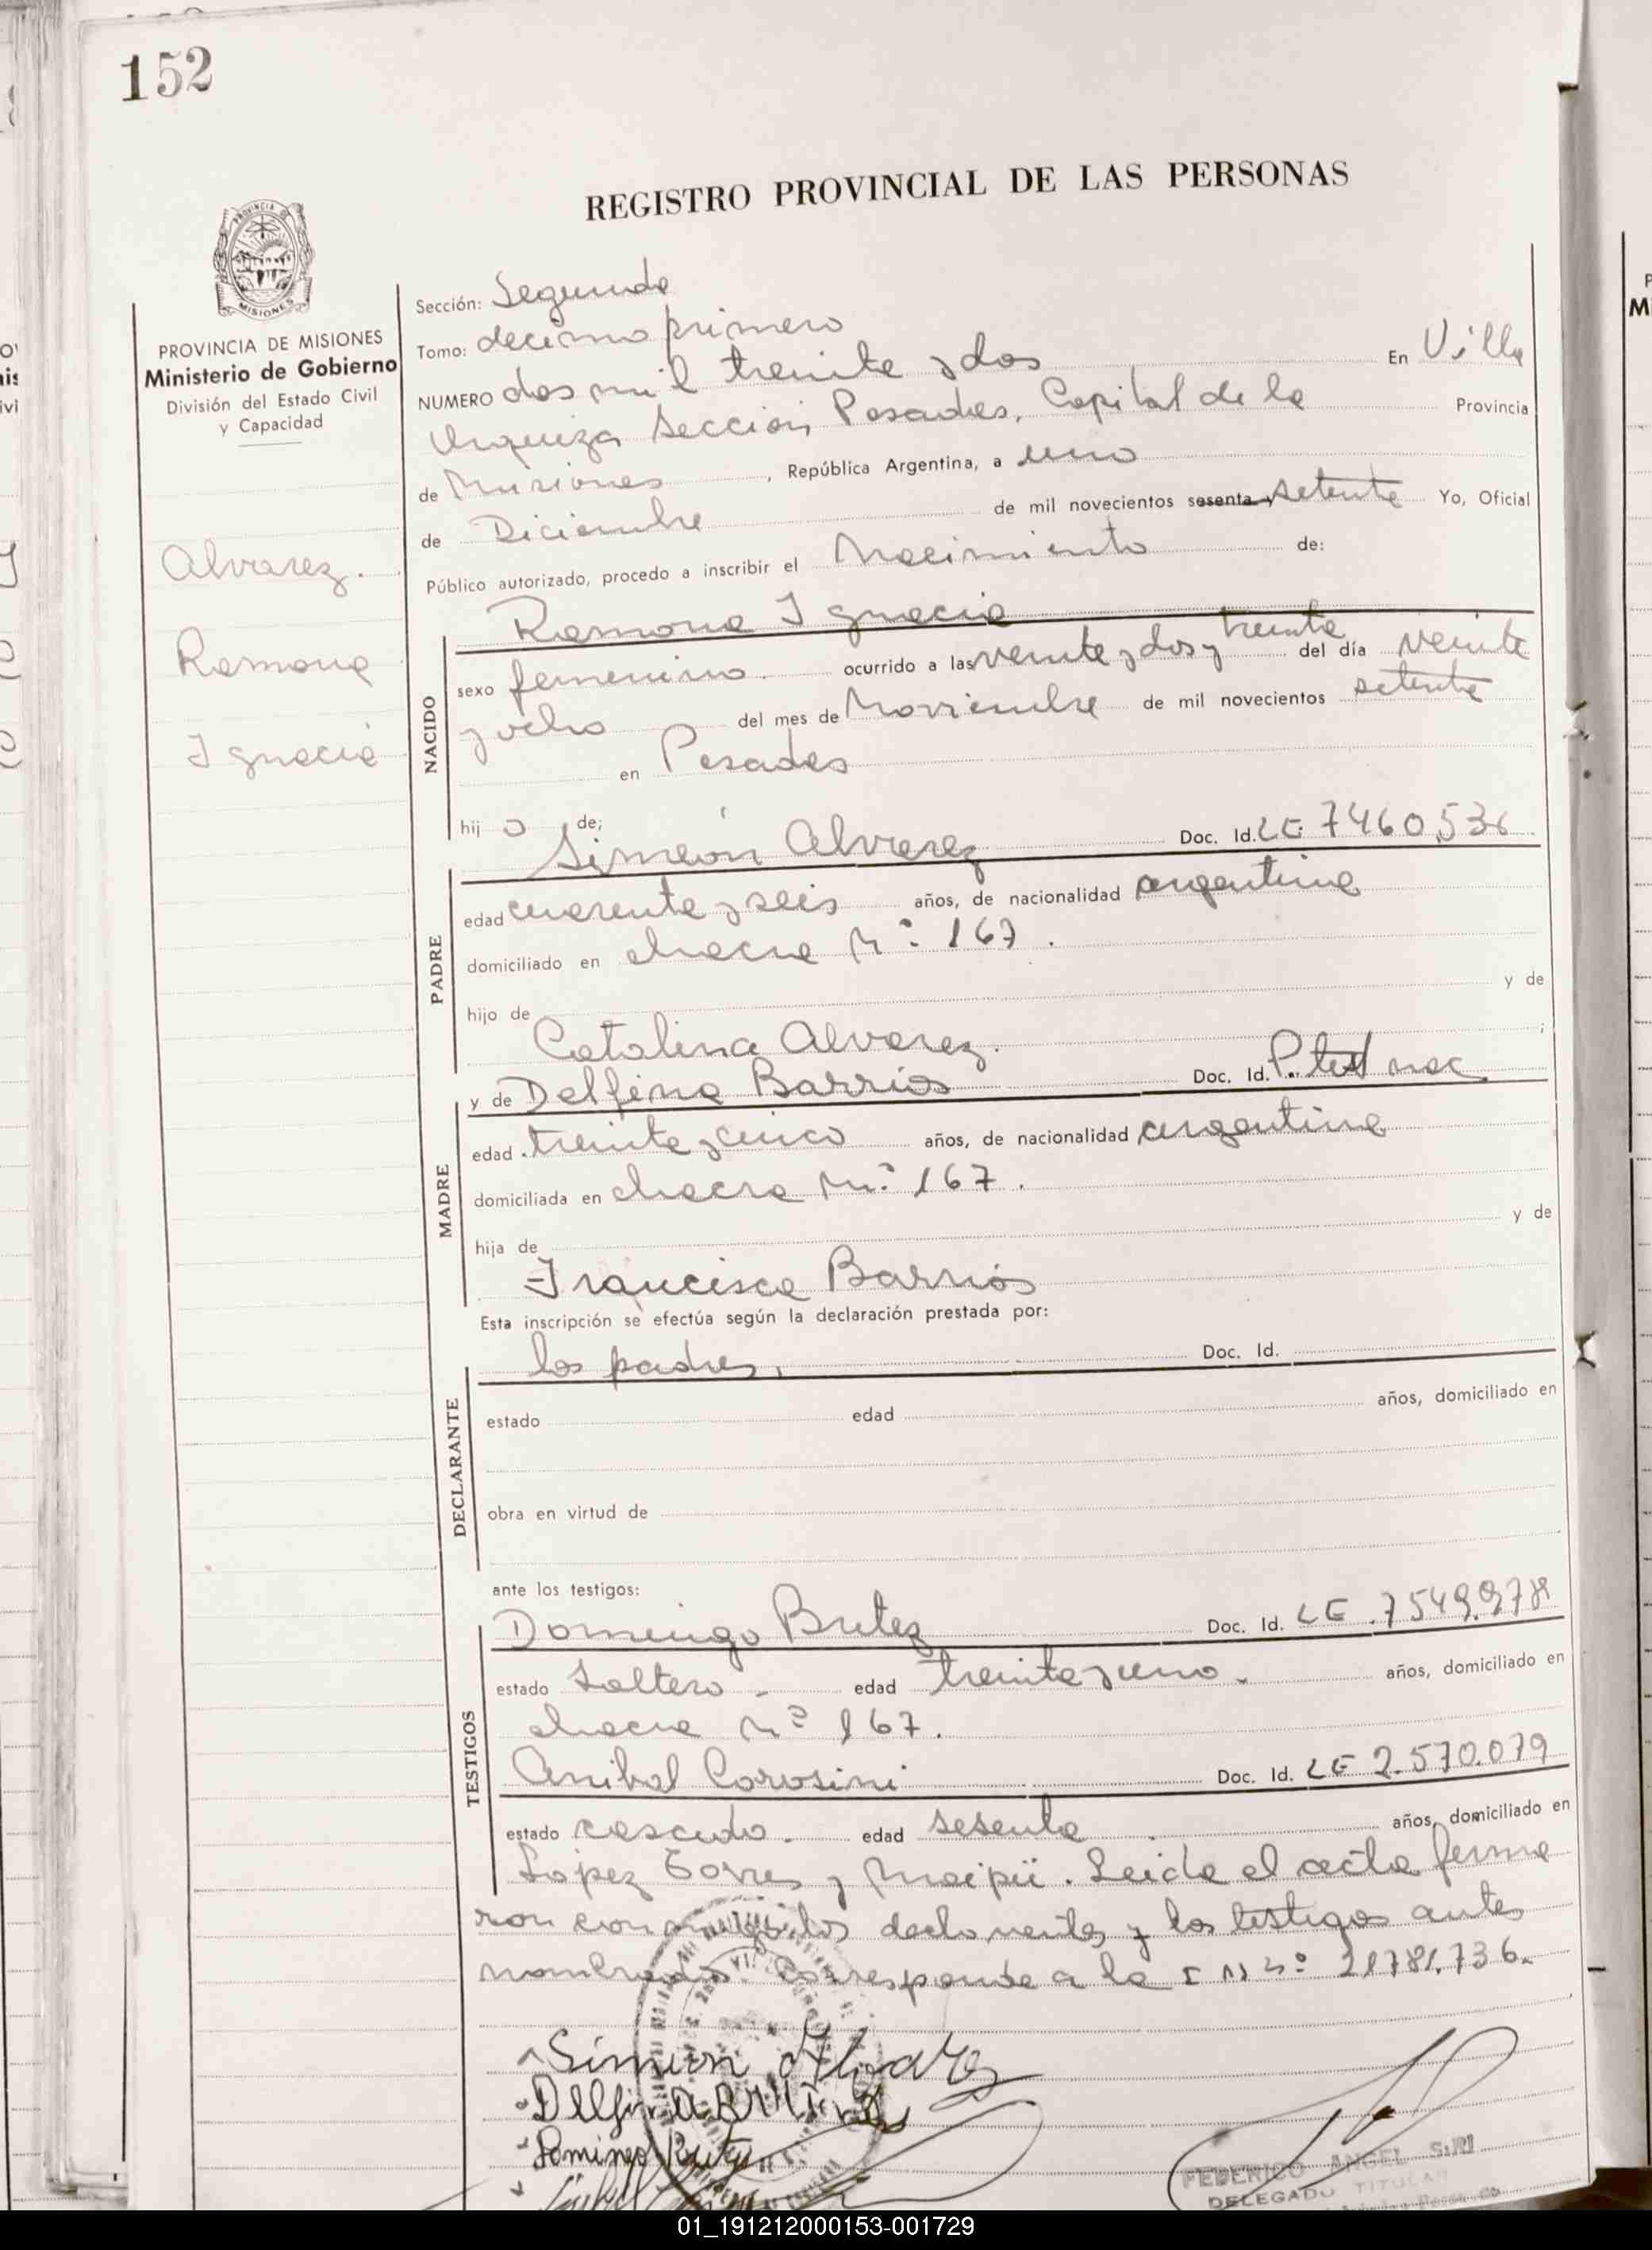 152
REGISTRO PROVINCIAL DE LAS PERSONAS
MISIONES
PROVINCIA DE MISIONES
Ministerio de Gobierno
División del Estado Civil
y Capacidad
Alvarez.
Ramona
Ignacia
Sección: Segunda
Tomo: decimo primero
NUMERO dos mil treinta y dos En Villa
Urquiza Sección Posadas, Capital de la Provincia
de Misiones, República Argentina, a uno
de Diciembre de mil novecientos sesenta y setenta Yo, Oficial
Público autorizado, procedo a inscribir el Nacimiento de:
Ramona Ignacia
NACIDO
sexo femenino. ocurrido a las veinte y dos y treinta del día veinte
y ocho del mes de Noviembre de mil novecientos setenta
en Posadas
hij o de;
Simeón Alvarez Doc. Id. LE 7460,536
PADRE
edad cuarenta y seis años, de nacionalidad argentina
domiciliado en chacra N° 167.
hijo de y de
Catalina Alvarez. ;
y de Delfina Barrios Doc. Id. P. test nac
MADRE
edad treinta y cinco años, de nacionalidad argentina
domiciliada en chacra N° 167.
hija de y de
Francisca Barrios
Esta inscripción se efectúa según la declaración prestada por:
los padres, Doc. Id.
DECLARANTE
estado edad años, domiciliado en
obra en virtud de
ante los testigos:
Domingo Britez Doc. Id. LE 7549.978
TESTIGOS
estado Soltero - edad treinta y uno - años, domiciliado en
chacra N° 167.
Anibal Corosini Doc. Id. LE 2.570.079
estado casado. edad sesenta años, domiciliado en
López Torres y Maipú. Leida el acta firma
ron conmigo los declarantes y los testigos antes
nombrados. Corresponde a la 21781.736.
Simeon Alvarez
Delfina
Domingo
FEDERICO ANGEL SIRI
DELEGADO TITULAR
01_191212000153-001729